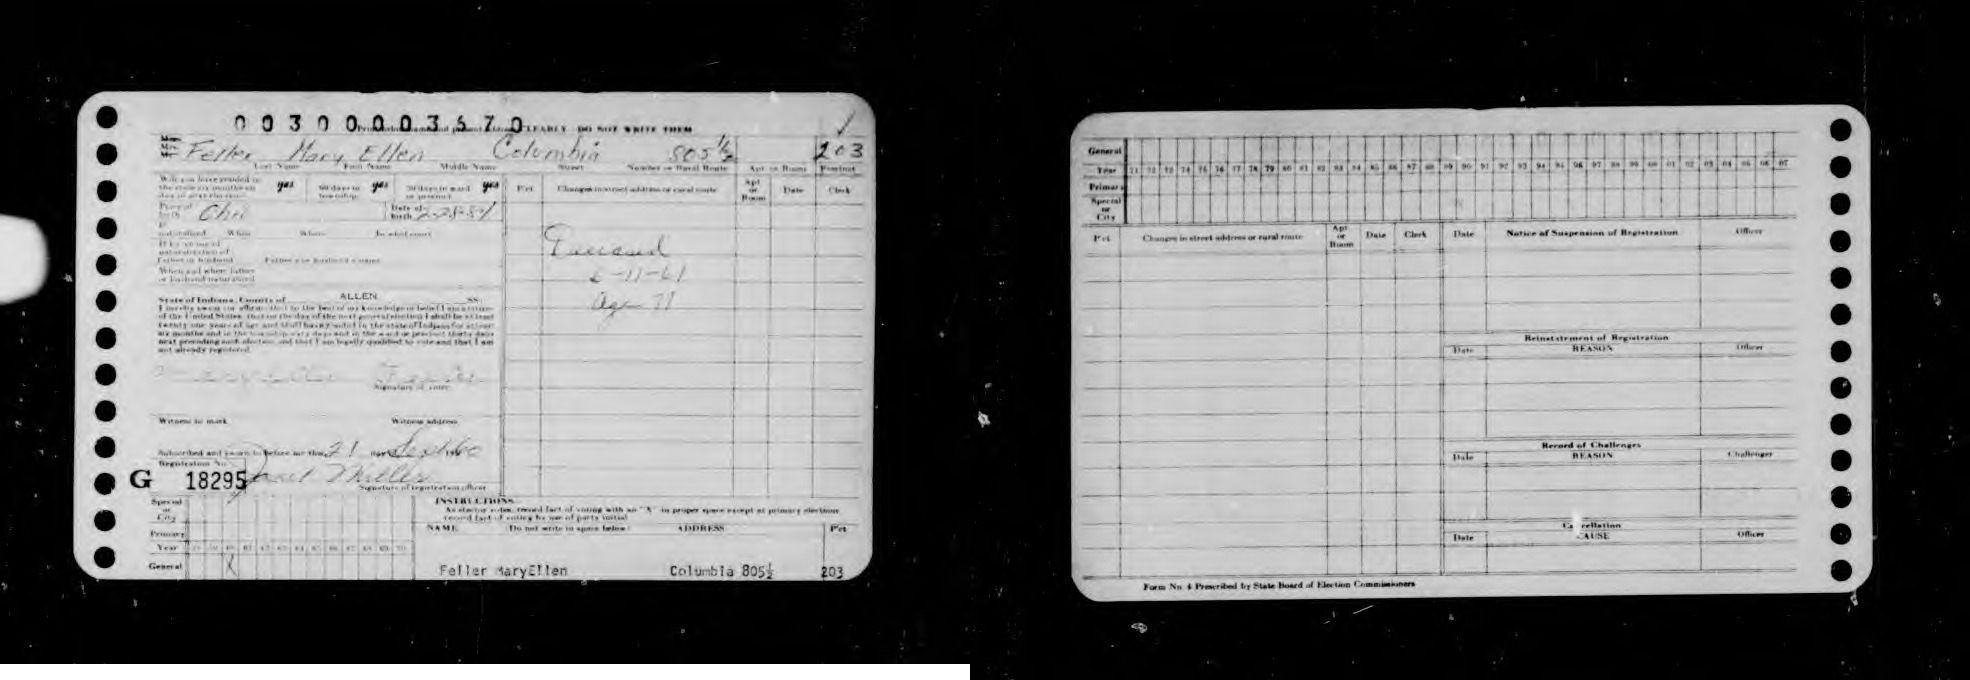 00300003570
CLEARLY DO NOT WRITE THEM
Miss
Mrs.
Mr.
Feller Mary Ellen Columbia 805½ 203
Last Name First Name Middle Name Street Number or Rural Route Apt or Room Precinct
Will you have resided in
the state six months on
day of next election yes 60 days in
township yes 30 days in ward
or precinct yes
Place of
birth Ohio Date of
birth
If
naturalized When Where In what court
If by virtue of
naturalization of
Father or husband Father's or husband's name
When and where father
or husband naturalized
State of Indiana, County of ALLEN SS:
I hereby swear (or affirm) that to the best of my knowledge or belief I am a citizen
of the United States, that on the day of the next general election I shall be at least
twenty-one years of age and shall have resided in the state of Indiana for at least
six months and in the township sixty days and in the ward or precinct thirty days
next preceding such election, and that I am legally qualified to vote and that I am
not already registered.
Signature of voter
Witness to mark Witness address
Subscribed and sworn to before me this 21 day Sept 1960
Registration No.
G 18295
Janet Miller
Signature of registration officer
Pct Changes in street address or rural route Apt
or
Room Date Clerk
Deceased
6-11-61
Age 77
INSTRUCTIONS
As elector votes, record fact of voting with an "X" in proper space except at primary elections
record fact of voting by use of party initial
Special
or
City
Primary
Year
General X
NAME Do not write in space below: ADDRESS Pct
Feller MaryEllen Columbia 805½ 203
General
Year 71 72 73 74 75 76 77 78 79 80 81 82 83 84 85 86 87 88 89 90 91 92 93 94 95 96 97 98 99 00 01 02 03 04 05 06 07
Primary
Special
or
City
Pct Changes in street address or rural route Apt
or
Room Date Clerk Date Notice of Suspension of Registration Officer
Reinstatement of Registration
Date REASON Officer
Record of Challenges
Date REASON Challenger
Cancellation
Date CAUSE Officer
Form No. 4 Prescribed by State Board of Election Commissioners